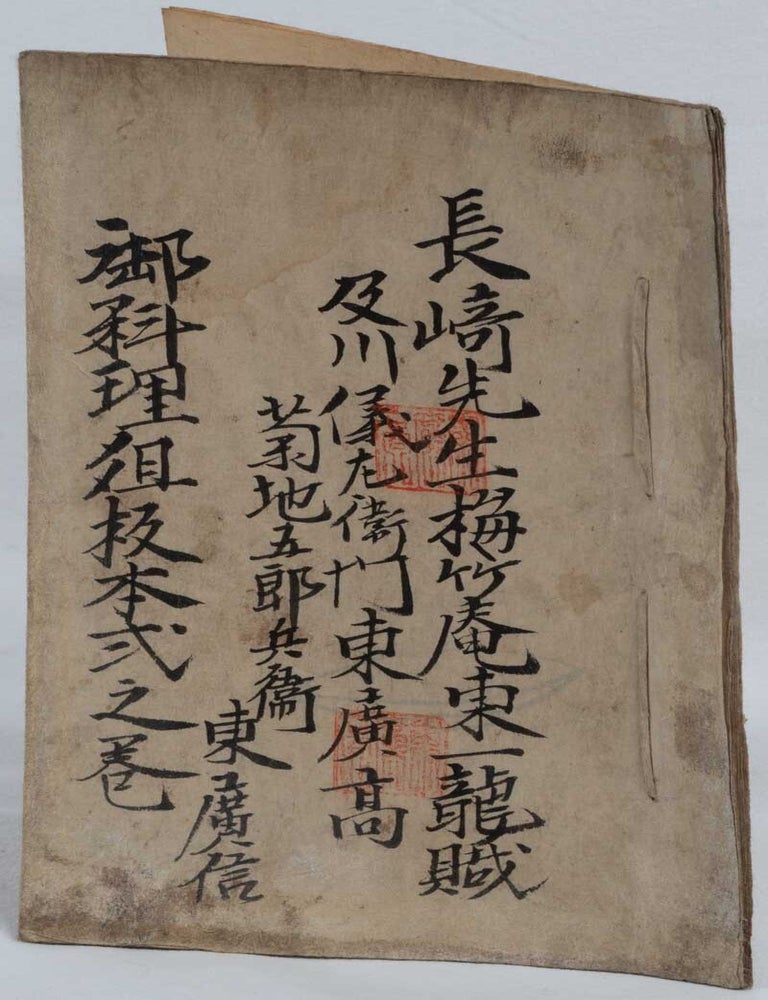 長﨑先生梅竹庵東一龍賊
及川儀左衛門東廣高
菊地五郎兵衛
東廣信
御料理俎板本弍之巻